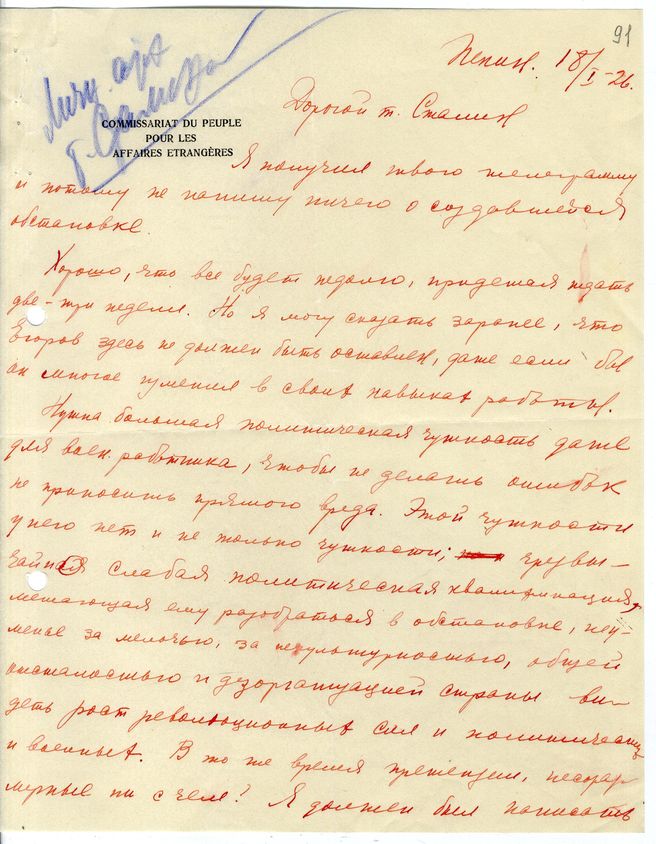 91
Личн. арх
т. Сталина
Пекин. 18/I-26.
COMMISSARIAT DU PEUPLE
POUR LES
AFFAIRES ETRANGÈRES
Дорогой т. Сталин
Я получил твою телеграмму
и потому не напишу ничего о создавшейся
обстановке.
Хорошо, что все будет недолго, придется ждать
две-три недели. Но я могу сказать заранее, что
Егоров здесь не должен быть оставлен, даже если бы
он многое изменил в своих навыках работы.
Нужна большая политическая чуткость даже
для воен. работника, чтобы не делать ошибок
не приносить прямого вреда. Этой чуткости
у него нет и не только чуткости; чрезвы-
чайная слабая политическая квалификация,
мешающая ему разобраться в обстановке, неу-
менье за мелочью, за некультурностью, общей
отсталостью и дезорганизацией страны ви-
деть рост революционных сил и политических
и военных. В то же время претензии, несораз
мерные ни с чем! Я должен был написать